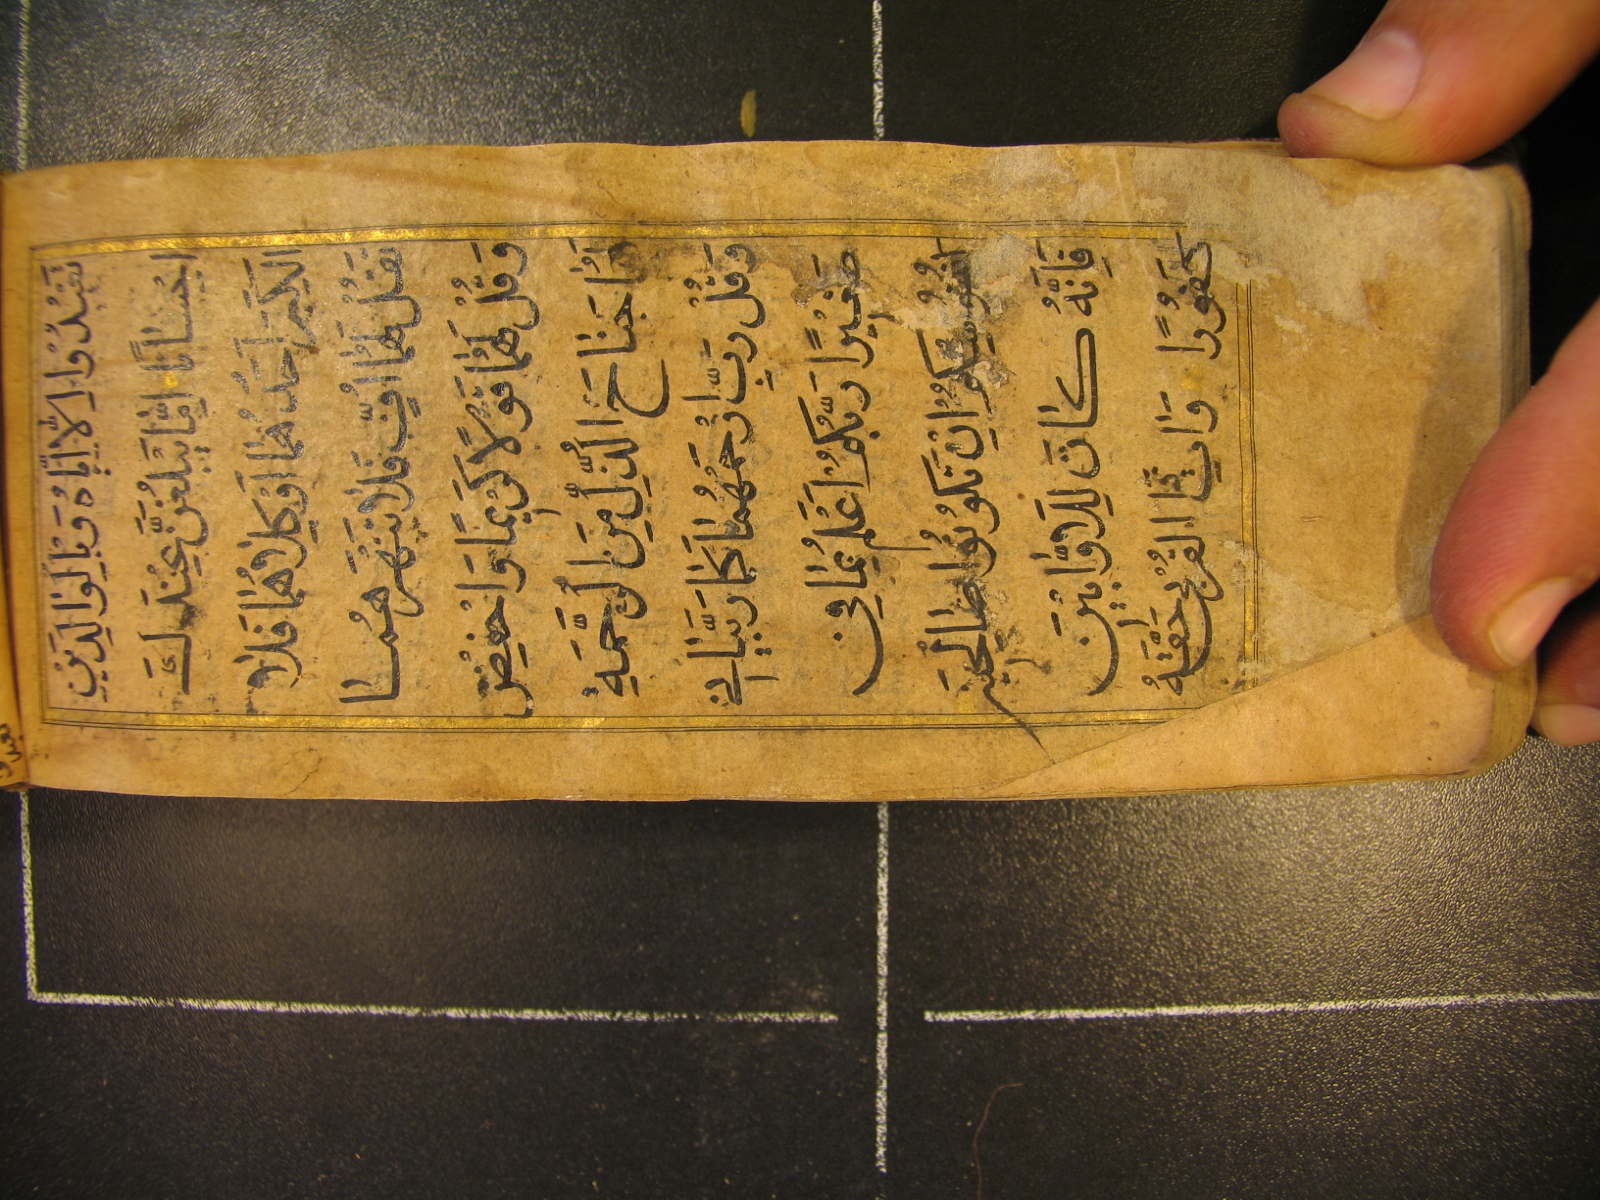 تَعْبُدُوا اِلَّا اِيَّاهُ وَبِالْوَالِدَيْنِ
اِحْسَانًا اِمَّا يَبْلُغَنَّ عِنْدَكَ
الْكِبَرَ اَحَدُهُمَا اَوْ كِلَاهُمَا فَلَا
تَقُلْ لَهُمَا اُفٍّ وَلَا تَنْهَرْهُمَا
وَقُلْ لَهُمَا قَوْلًا كَرِيمًا وَاخْفِضْ
لَهُمَا جَنَاحَ الذُّلِّ مِنَ الرَّحْمَةِ
وَقُلْ رَبِّ ارْحَمْهُمَا كَمَا رَبَّيَانِي
صَغِيرًا رَبُّكُمْ اَعْلَمُ بِمَا فِي
نُفُوسِكُمْ اِنْ تَكُونُوا صَالِحِينَ
فَاِنَّهُ كَانَ لِلْاَوَّابِينَ
غَفُورًا وَاٰتِ ذَا الْقُرْبٰى حَقَّهُ